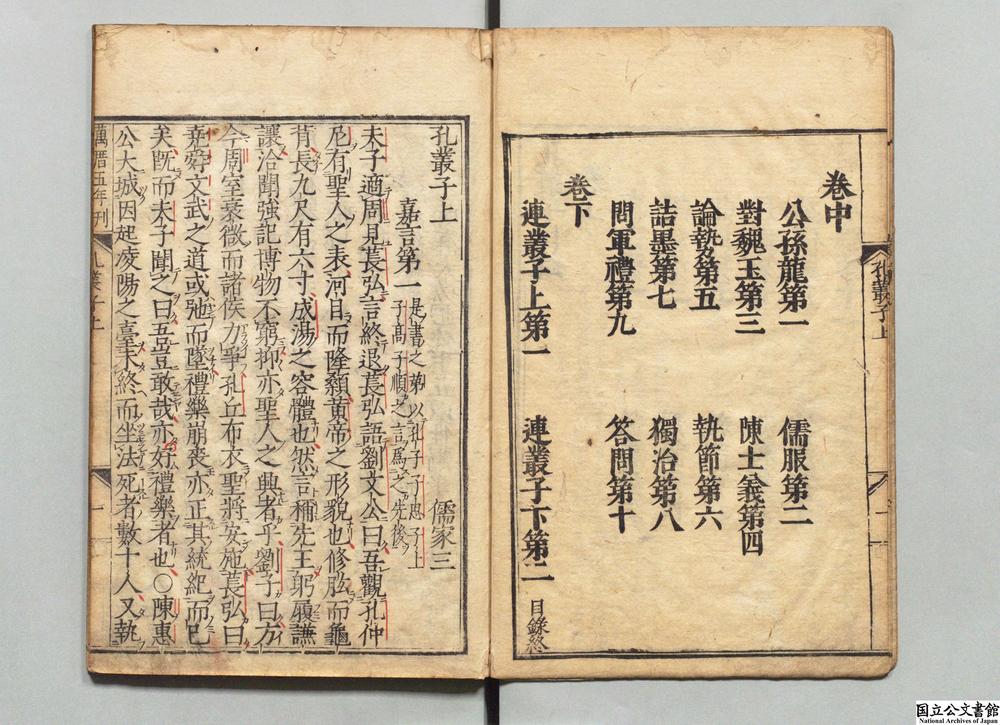 卷中
公孫龍第一 儒服第二
對魏王第三 陳士義第四
論埶第五 執節第六
詰墨第七 獨治第八
問軍禮第九 答問第十
卷下
連叢子上第一 連叢子下第二 目錄終
孔叢子上
孔叢子上 儒家三
嘉言第一 是書之第以孔子子思子上
子髙子順之言爲之先後
夫子適周見萇弘言終退萇弘語劉文公曰吾觀孔仲
尼有聖人之表河目而隆顙黃帝之形貌也修肱而龜
背長九尺有六寸成湯之容體也然言稱先王躬履謙
讓洽聞強記博物不窮抑亦聖人之興者乎劉子曰方
今周室衰微而諸侯力爭孔丘布衣聖將安施萇弘曰
堯舜文武之道或弛而墜禮樂崩喪亦正其統紀而已
矣旣而夫子聞之曰吾豈敢哉亦好禮樂者也○陳惠
公大城因起凌陽之臺未終而坐法死者數十人又執
萬曆五年刊
孔叢子上
一
国立公文書館
National Archives of Japan